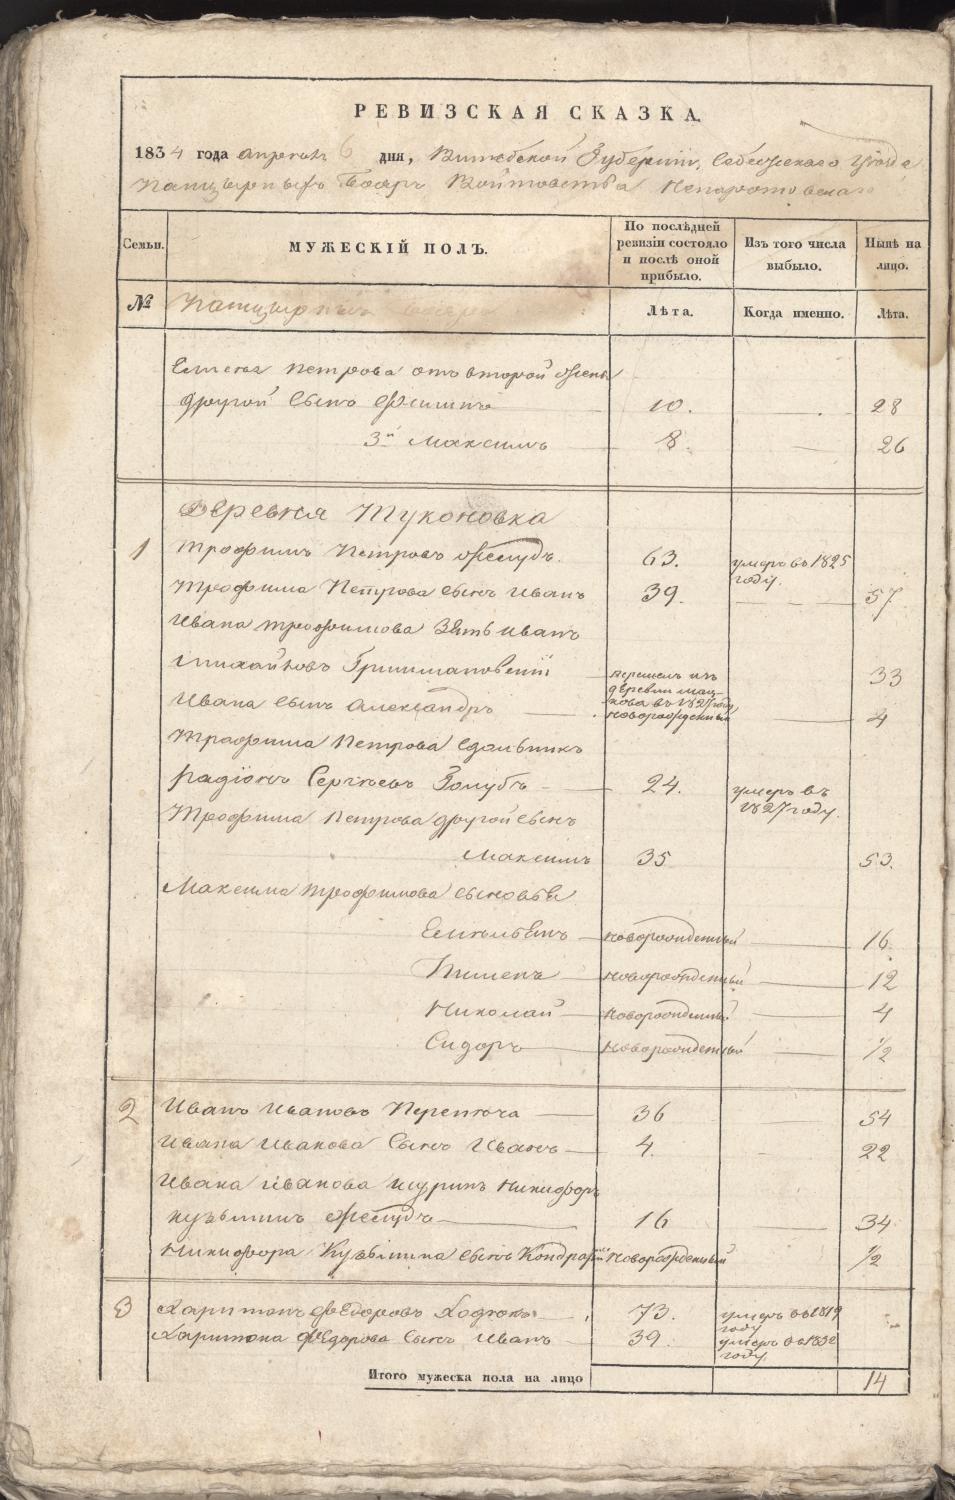 РЕВИЗСКАЯ СКАЗКА.
1834 года апреля 6 дня, Витебской Губернии, Себежскаго уезда
Панцырныхъ Бояръ Войтовства Непоротовскаго
Семьи. МУЖЕСКІЙ ПОЛЪ. По послѣдней ревизіи состояло и послѣ оной прибыло. Изъ того числа выбыло. Нынѣ на лицо.
№ Панцырныхъ Лѣта. Когда именно. Лѣта.
Петрова отъ второй жены
другой Сынъ Филипъ 10. 28
3й Максимъ 8. 26
Деревня Туконовка
1 Трофимъ Петровъ 63. умеръ въ 1825 году.
Трофима Петрова сынъ Иванъ 39. 57
Ивана Трофимова Зять Иванъ
Михайловъ перешелъ изъ деревни въ 1827 году 33
Ивана сынъ Александръ новорожденный 4
Трофима Петрова
Радіонъ Сергѣевъ Голубъ 24. умеръ въ 1827 году.
Трофима Петрова другой сынъ
Максимъ 35 53.
Максима Трофимова сыновья
Емельянъ новорожденный 16
Пименъ новорожденный 12
Николай новорожденный 4
Сидоръ новорожденный 1/2
2 Иванъ Ивановъ 36 54
Ивана Иванова Сынъ Иванъ 4. 22
Ивана Иванова шуринъ Никифоръ
Кузьминъ 16 34
Никифора Кузьмина сынъ Кондратій новорожденный 1/2
3 Харитонъ Федоровъ 73. умеръ въ 1819 году
Харитона Федорова Сынъ Иванъ 39. умеръ въ 1832 году.
Итого мужеска пола на лицо 14